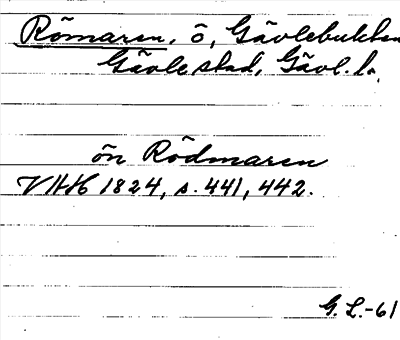 Römaren, ö, Gävlebukten
Gävle stad, Gävl. l.
ön Rödmaren
VHH 1824, s. 441, 442.
G. L.-61